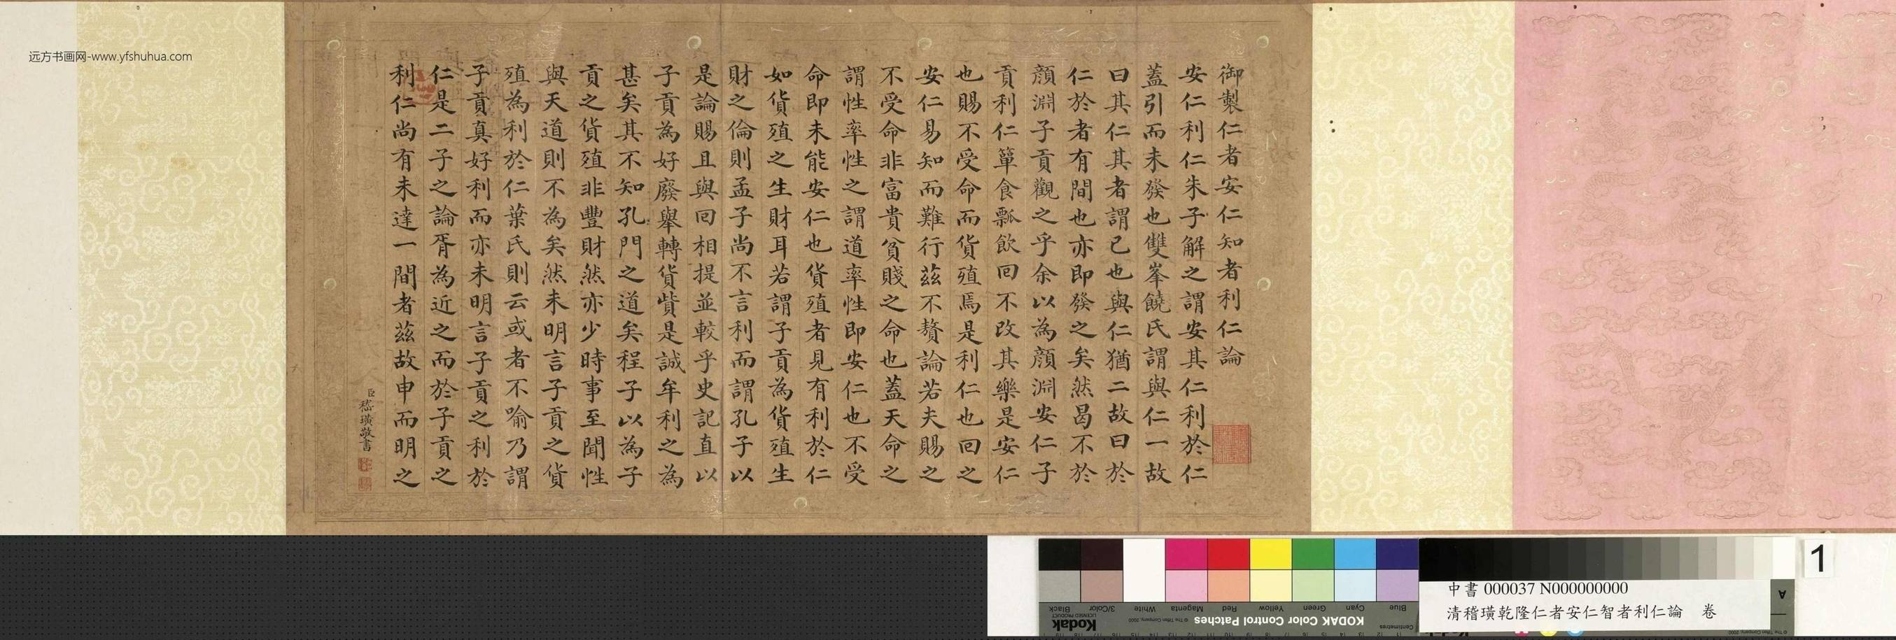 远方书画网-www.yfshuhua.com
御製仁者安仁知者利仁論
安仁利仁朱子解之謂安其仁利於仁
蓋引而未發也雙峯饒氏謂與仁一故
曰其仁其者謂已也與仁猶二故曰於
仁於者有間也亦即發之矣然曷不於
顏淵子貢觀之乎余以為顏淵安仁子
貢利仁簞食瓢飲回不改其樂是安仁
也賜不受命而貨殖焉是利仁也回之
安仁易知而難行茲不贅論若夫賜之
不受命非富貴貧賤之命也蓋天命之
謂性率性之謂道率性即安仁也不受
命即未能安仁也貨殖者見有利於仁
如貨殖之生財耳若謂子貢為貨殖生
財之倫則孟子尚不言利而謂孔子以
是論賜且與回相提並較乎史記直以
子貢為好廢舉轉貨貲是誠牟利之為
甚矣其不知孔門之道矣程子以為子
貢之貨殖非豐財然亦少時事至聞性
與天道則不為矣然未明言子貢之貨
殖為利於仁葉氏則云或者不喻乃謂
子貢真好利而亦未明言子貢之利於
仁是二子之論胥為近之而於子貢之
利仁尚有未達一間者茲故申而明之
臣嵇璜敬書
Black
3/Color
White
Magenta
Red
Yellow
Green
Cyan
Blue
Kodak
KODAK Color Control Patches
中書 000037 N000000000
清稽璜乾隆仁者安仁智者利仁論 卷
A
1